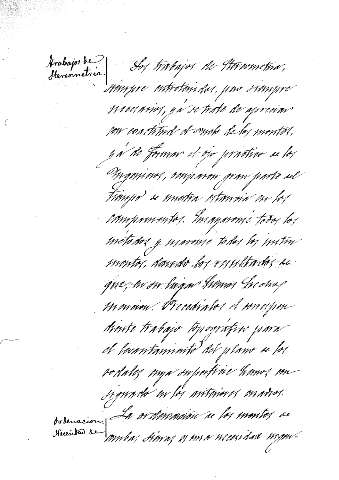 Trabajos de
Stereometria
Los trabajos de Stereometria,
siempre entretenidos, pero siempre
necesarios, yá se trate de apreciar
con exactitud el vuelo de los montes,
yá de formar el ojo practico de los
Ingenieros, ocuparon gran parte del
tiempo de nuestra estancia en los
campamentos. Ensayamos todos los
métodos y usamos todos los instru
mentos, dando los resultados de
que, en su lugar hemos hecho
mencion. Precedíalos el correspon
diente trabajo topográfico para
el levantamiento del plano de los
rodales cuya superficie hemos con
signado en los anteriores cuadros.
Ordenacion
Necesidad de
La ordenación de los montes de
ambas Sierras es una necesidad urgen-